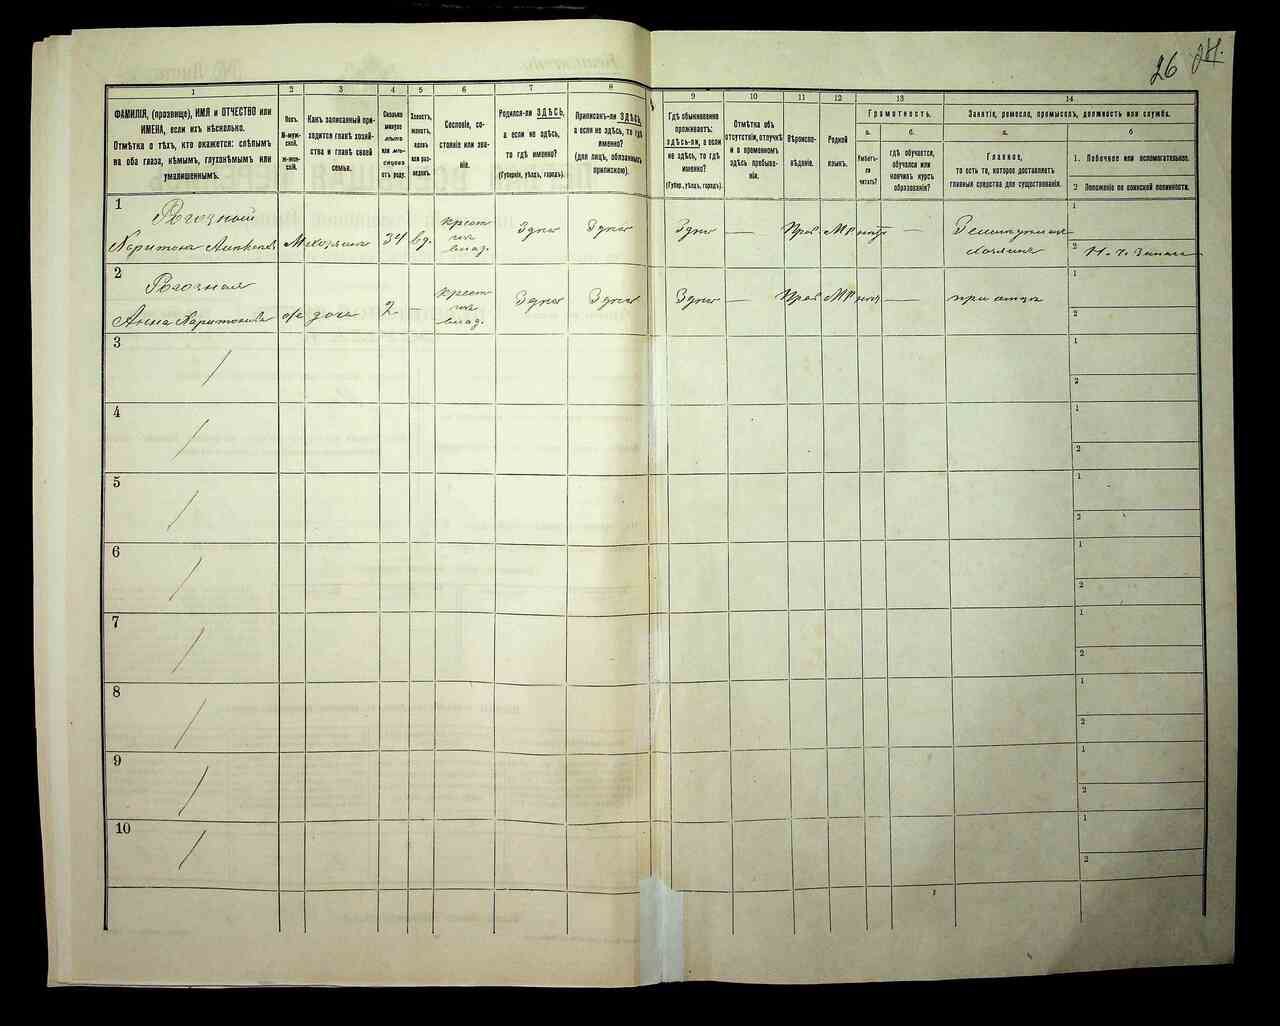 26 24.
1
2
3
4
5
6
7
8
9
10
11
12
13
14
ФАМИЛІЯ, (прозвище), ИМЯ и ОТЧЕСТВО или
ИМЕНА, если ихъ нѣсколько.
Отмѣтка о тѣхъ, кто окажется: слѣпымъ
на оба глаза, нѣмымъ, глухонѣмымъ или
умалишеннымъ.
Полъ.
М-муж-
ской.
Ж-жен-
скій.
Какъ записанный при-
ходится главѣ хозяй-
ства и главѣ своей
семьи.
Сколько
минуло
лѣтъ
или мѣ-
сяцевъ
отъ роду.
Холостъ,
женатъ,
вдовъ
или раз-
веденъ.
Сословіе, со-
стояніе или зва-
ніе.
Родился-ли ЗДѢСЬ,
а если не здѣсь,
то гдѣ именно?
(Губернія, уѣздъ, городъ).
Приписанъ-ли ЗДѢСЬ,
а если не здѣсь, то гдѣ
именно?
(для лицъ, обязанныхъ
припискою).
Гдѣ обыкновенно
проживаетъ:
здѣсь-ли, а если
не здѣсь, то гдѣ
именно?
(Губер., уѣздъ, городъ).
Отмѣтка объ
отсутствіи, отлучкѣ
и о временномъ
здѣсь пребыва-
ніи.
Вѣроиспо-
вѣданіе.
Родной
языкъ.
Грамотность.
а.
б.
Умѣетъ-
ли
читать?
гдѣ обучается,
обучался или
кончилъ курсъ
образованія?
Занятіе, ремесло, промыселъ, должность или служба.
а.
б
Главное,
то есть то, которое доставляетъ
главныя средства для существованія.
1. Побочное или вспомогательное.
2 Положеніе по воинской повинности.
1
Рогозный
Харитонъ М хозяинъ 34 вд. крест Здѣсь Здѣсь Здѣсь — Прав МР — 
хозяинъ
1
2
2
Рогозная
Анна Харитонова ж дочь 2 — крест Здѣсь Здѣсь Здѣсь — Прав МР — при отцѣ
1
2
3 /
1
2
4 /
1
2
5 /
1
2
6 /
1
2
7 /
1
2
8 /
1
2
9 /
1
2
10 /
1
2